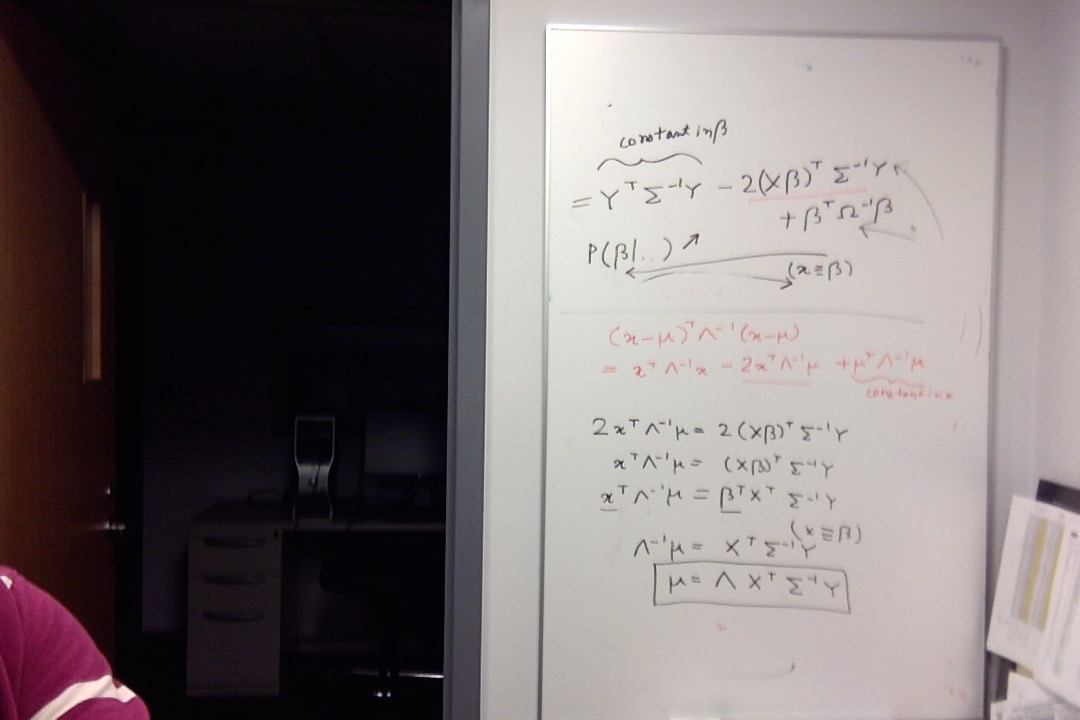 constant in β
= Y^T Σ^-1 Y - 2(Xβ)^T Σ^-1 Y
+ β^T Ω^-1 β
P(β|..)
(x ≡ β)
(x-μ)^T Λ^-1 (x-μ)
= x^T Λ^-1 x - 2x^T Λ^-1 μ + μ^T Λ^-1 μ
constant in x
2x^T Λ^-1 μ = 2(Xβ)^T Σ^-1 Y
x^T Λ^-1 μ = (Xβ)^T Σ^-1 Y
x^T Λ^-1 μ = β^T X^T Σ^-1 Y
(x ≡ β)
Λ^-1 μ = X^T Σ^-1 Y
μ = Λ X^T Σ^-1 Y